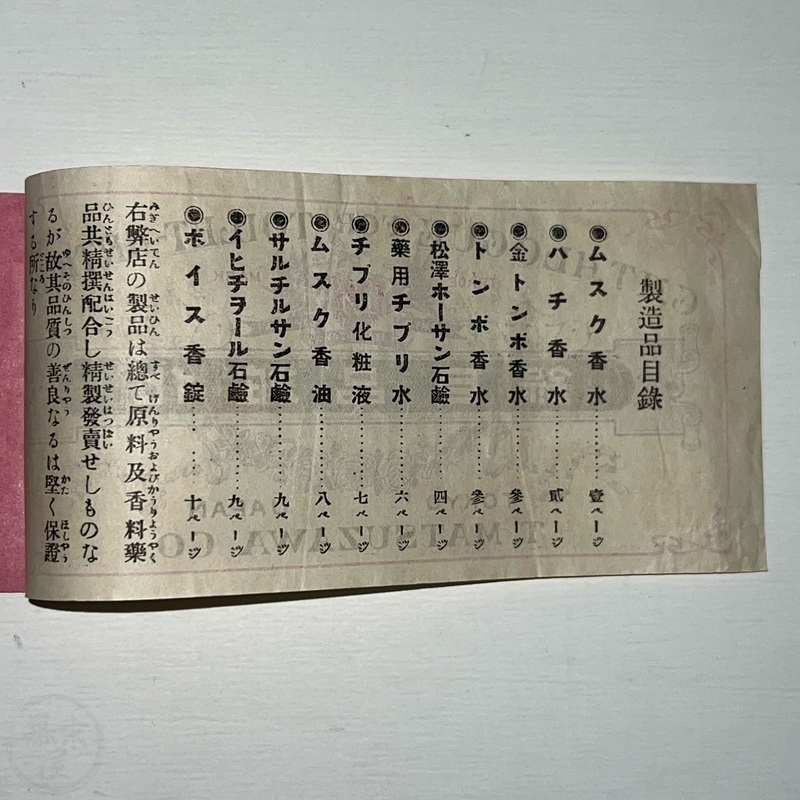 製造品目錄
◉ムスク香水………壹ページ
◉ハチ香水………貳ページ
◉金トンボ香水………參ページ
◉トンボ香水………參ページ
◉松澤ホーサン石鹼………四ページ
◉藥用チブリ水………六ページ
◉チブリ化粧液………七ページ
◉ムスク香油………八ページ
◉サルチルサン石鹼………九ページ
◉イヒチヲール石鹼………九ページ
◉ボイス香錠………十ページ
右弊店の製品は總て原料及香料藥
品共精撰配合し精製發賣せしものな
るが故其品質の善良なるは堅く保證
する所なり
T. MATSUZAWA CO